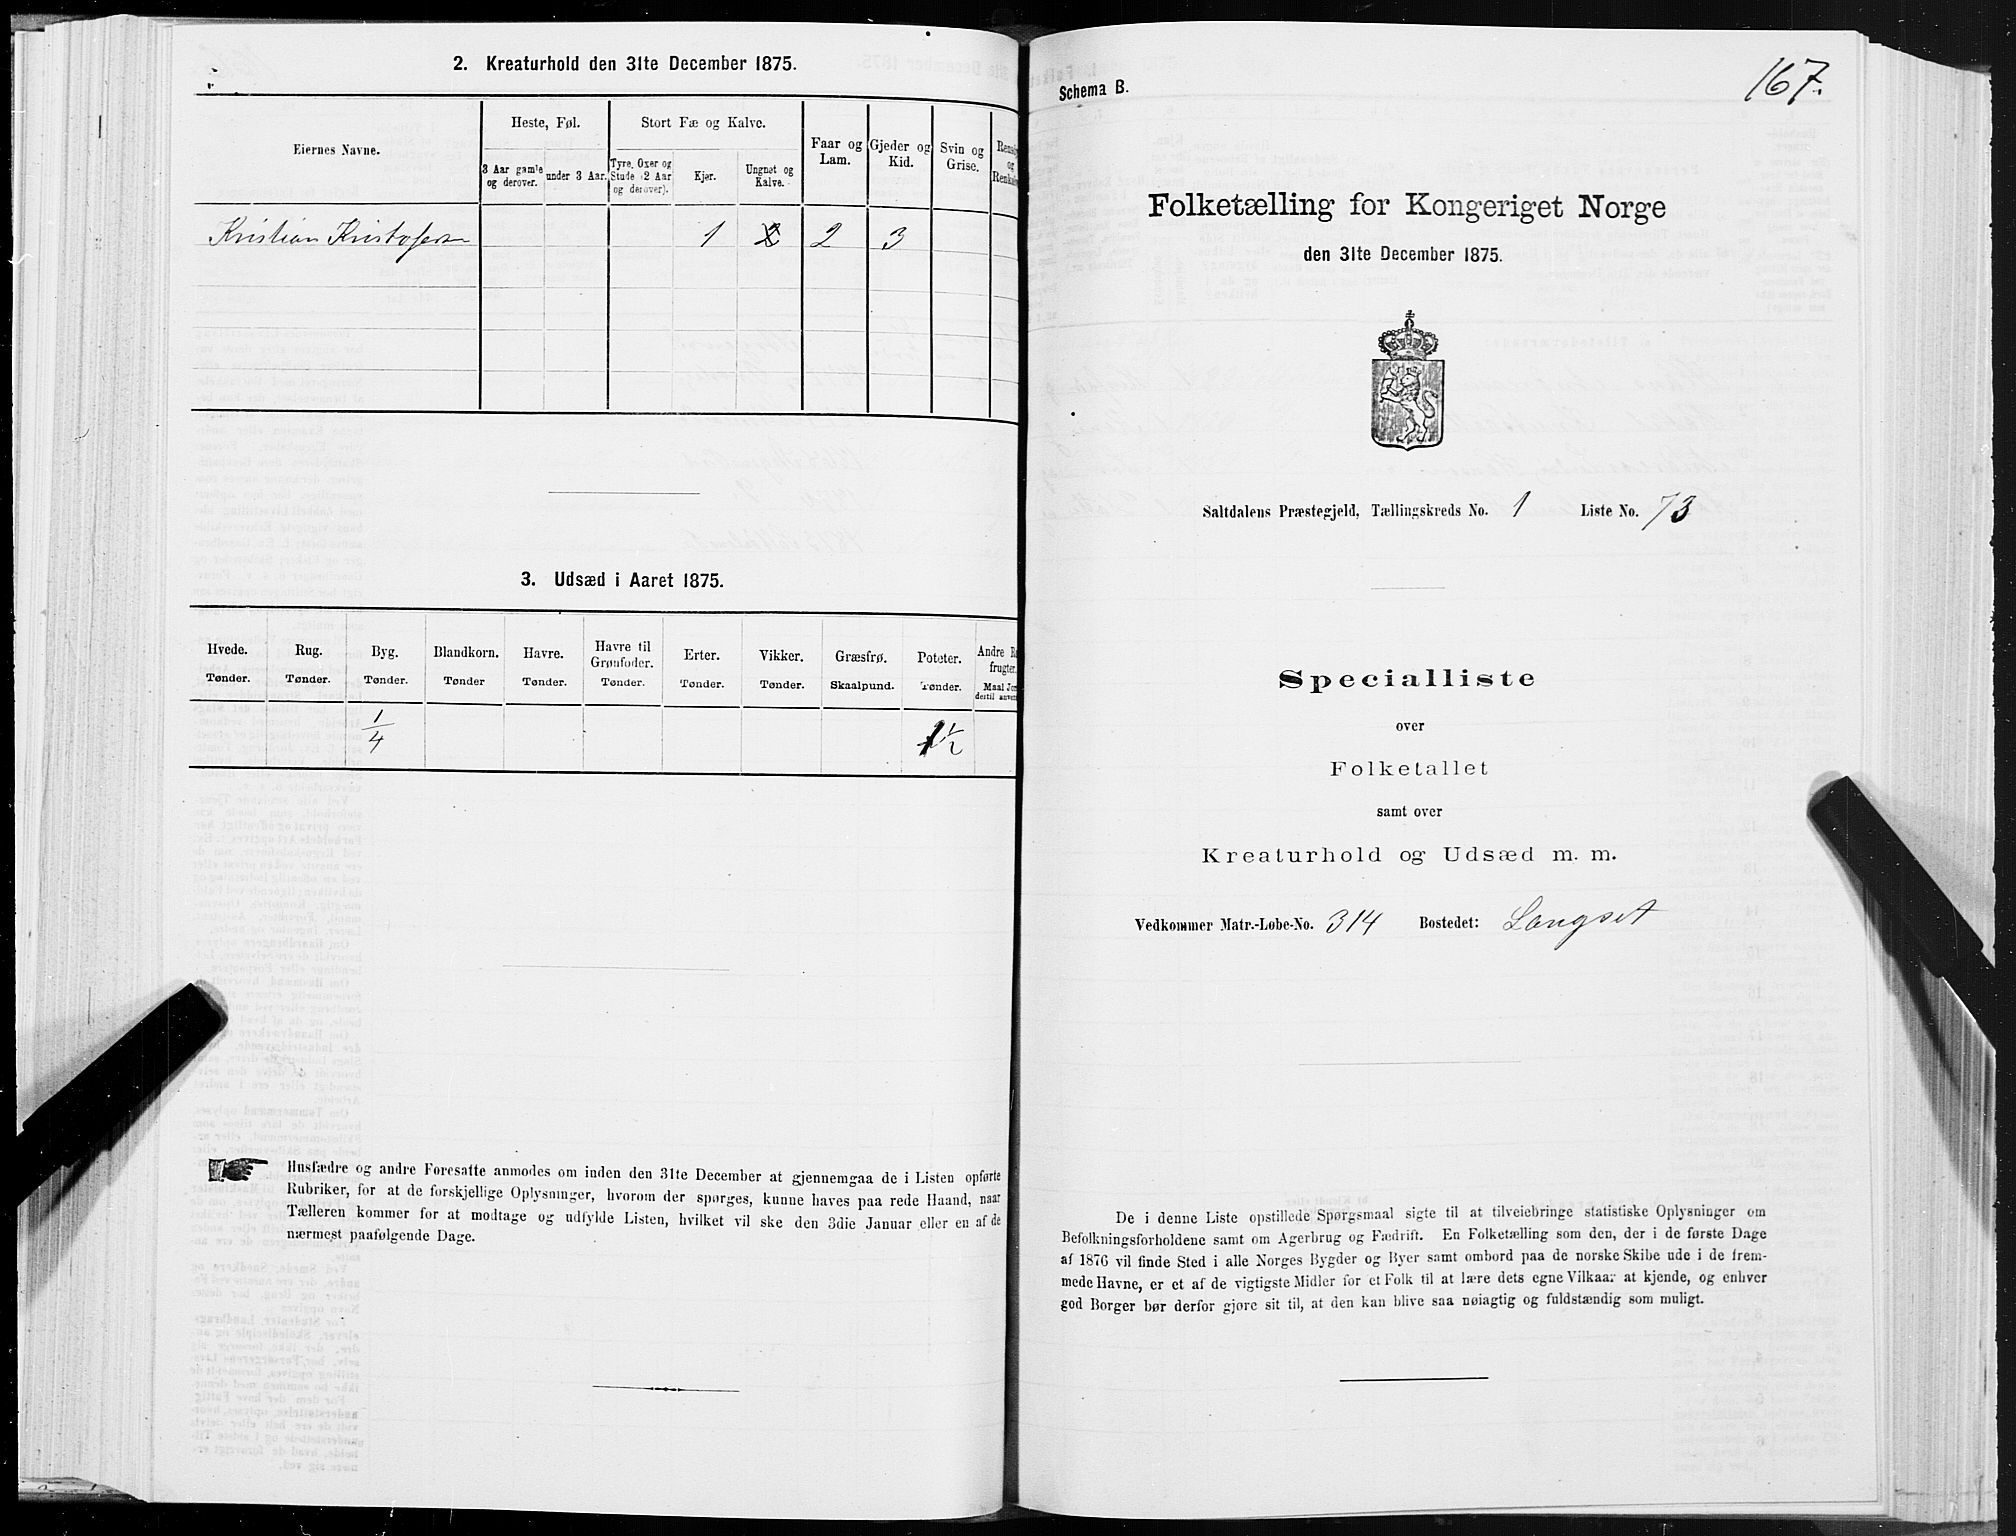 2. Kreaturhold den 31te December 1875.
Eiernes Navne.
Heste, Føl.
Stort Fæ og Kalve.
Faar og Lam.
Gjeder og Kid.
Svin og Grise.
og
3 Aar gamle og derover.
under 3 Aar.
Tyre, Oxer og Stude (2 Aar og derover).
Kjør.
Ungnøt og Kalve.
Kristian Kristofersen 1 2 2 3
3. Udsæd i Aaret 1875.
Hvede. Rug. Byg. Blandkorn. Havre. Havre til Grønfoder. Erter. Vikker. Græsfrø. Poteter. Andre
Tønder. Tønder. Tønder. Tønder Tønder. Tønder. Tønder. Tønder. Skaalpund. Tønder.
1/4 1 1/2
Husfædre og andre Foresatte anmodes om inden den 31te December at gjennemgaa de i Listen opførte
Rubriker, for at de forskjellige Oplysninger, hvorom der spørges, kunne haves paa rede Haand, naar
Tælleren kommer for at modtage og udfylde Listen, hvilket vil ske den 3die Januar eller en af de
nærmest paafølgende Dage.
167.
Schema B.
Folketælling for Kongeriget Norge
den 31te December 1875.
Saltdalens Præstegjeld, Tællingskreds No. 1 Liste No. 73
Specialliste
over
Folketallet
samt over
Kreaturhold og Udsæd m. m.
Vedkommer Matr.-Løbe-No. 314 Bostedet: Langset
De i denne Liste opstillede Spørgsmaal sigte til at tilveiebringe statistiske Oplysninger om
Befolkningsforholdene samt om Agerbrug og Fædrift. En Folketælling som den, der i de første Dage
af 1876 vil finde Sted i alle Norges Bygder og Byer samt ombord paa de norske Skibe ude i de frem-
mede Havne, er et af de vigtigste Midler for et Folk til at lære dets egne Vilkaar at kjende, og enhver
god Borger bør derfor gjøre sit til, at den kan blive saa nøiagtig og fuldstændig som muligt.